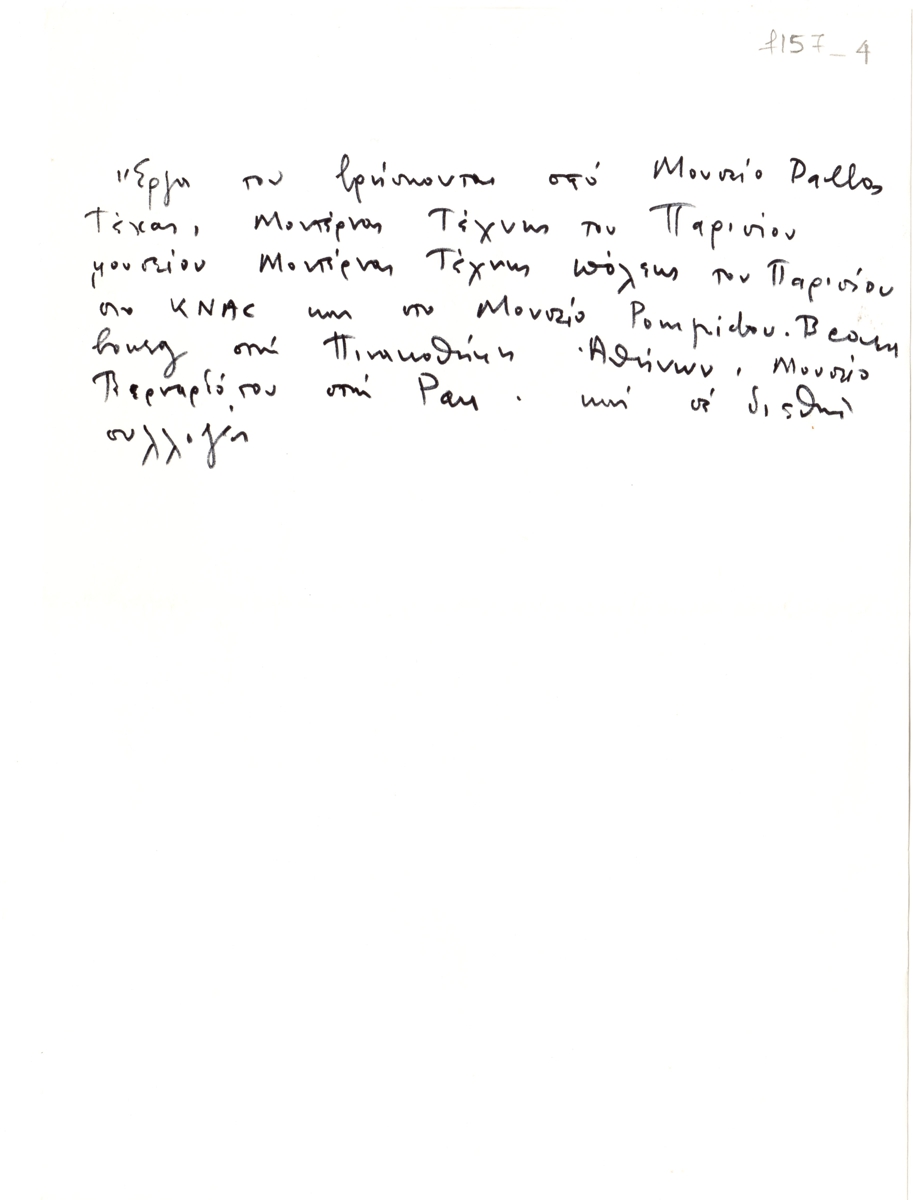 f157_4
Ἔργα του βρίσκονται στό Μουσείο Dallas
Τέχας, Μοντέρνας Τέχνης του Παρισιου
μουσείου Μοντέρνας Τέχνης πόλεως του Παρισιου
στο KNAC και στο Μουσείο Pompidou. Beau
bourg στή Πινακοθήκη Ἀθήνων, Μουσείο
στή . καί σέ διεθνή
συλλογή